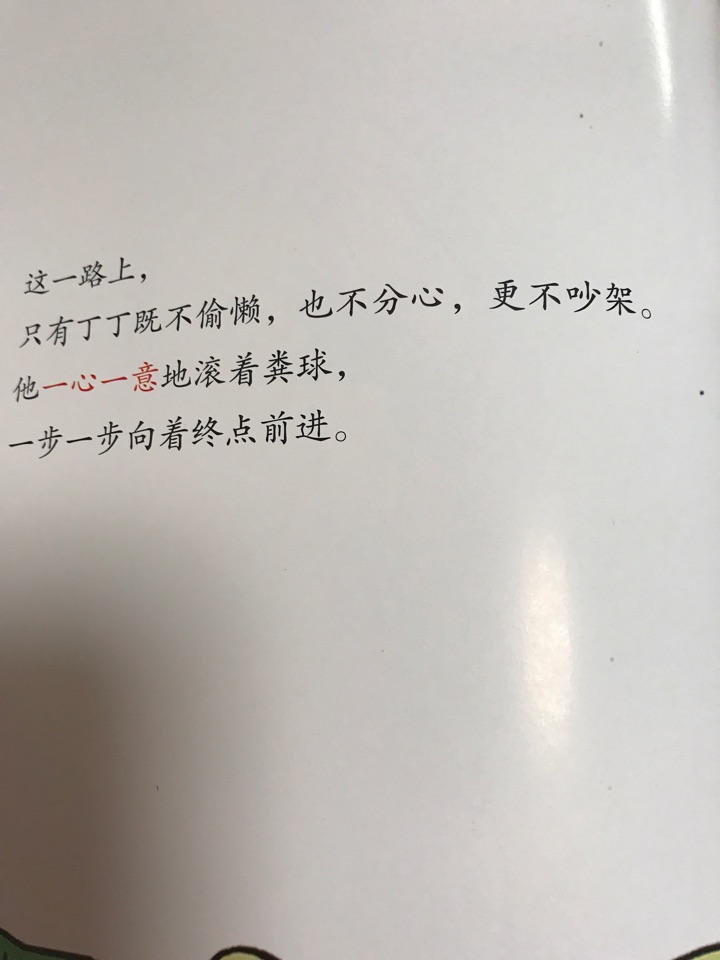 这一路上，
只有丁丁既不偷懒，也不分心，更不吵架。
他一心一意地滚着粪球，
一步一步向着终点前进。